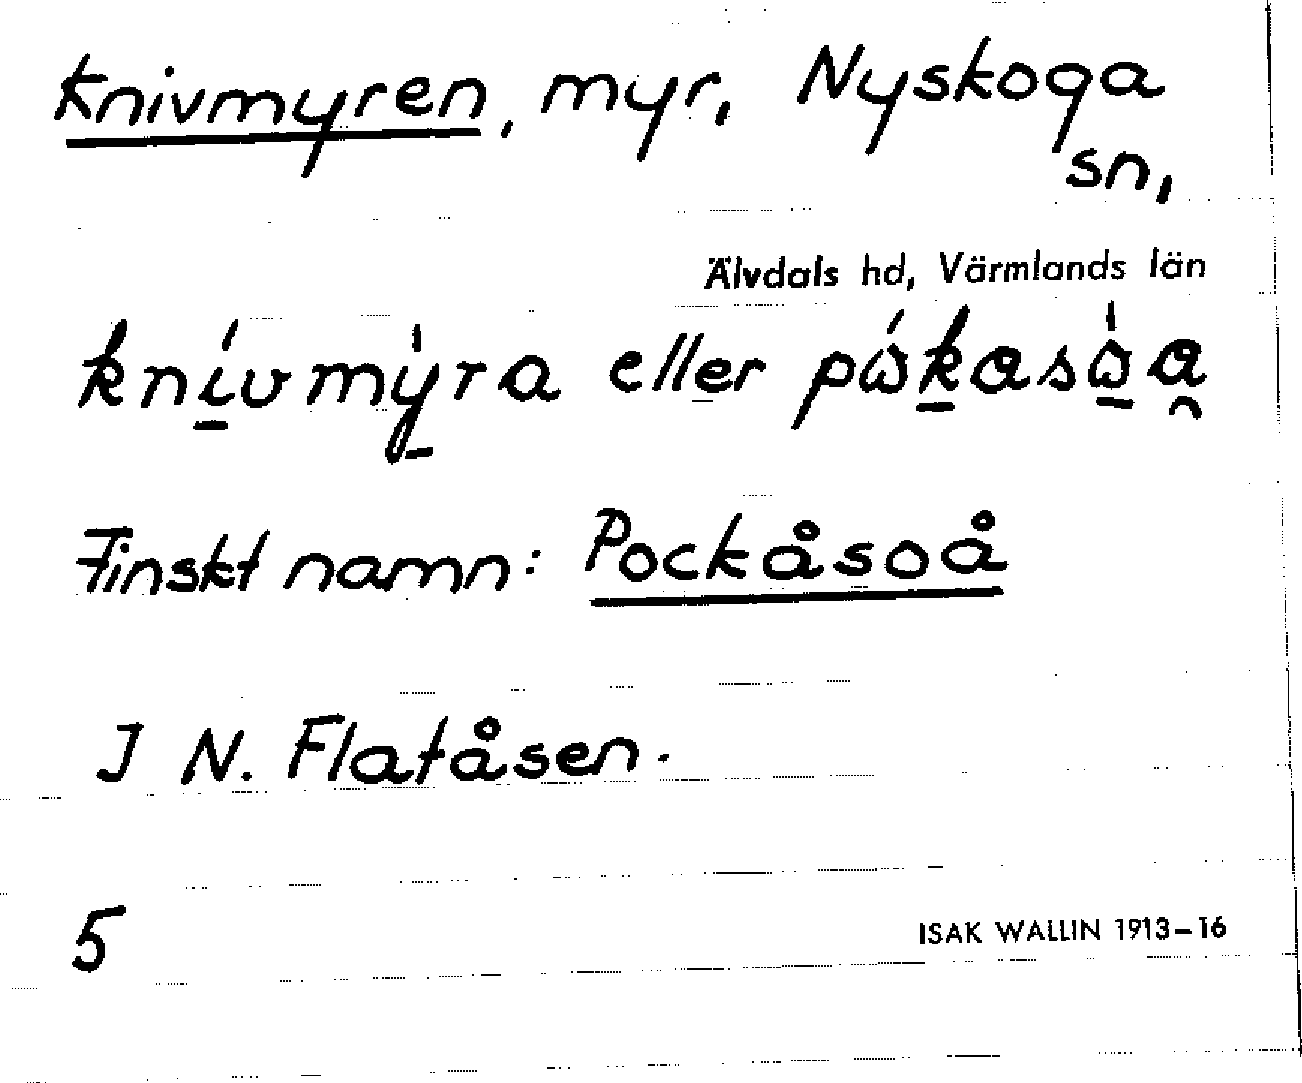 Knivmyren, myr, Nyskoga
sn,
Älvdals hd, Värmlands län
knivmyra eller
Finskt namn: Pockåsoå
I N. Flatåsen.
5
ISAK WALLIN 1913–16